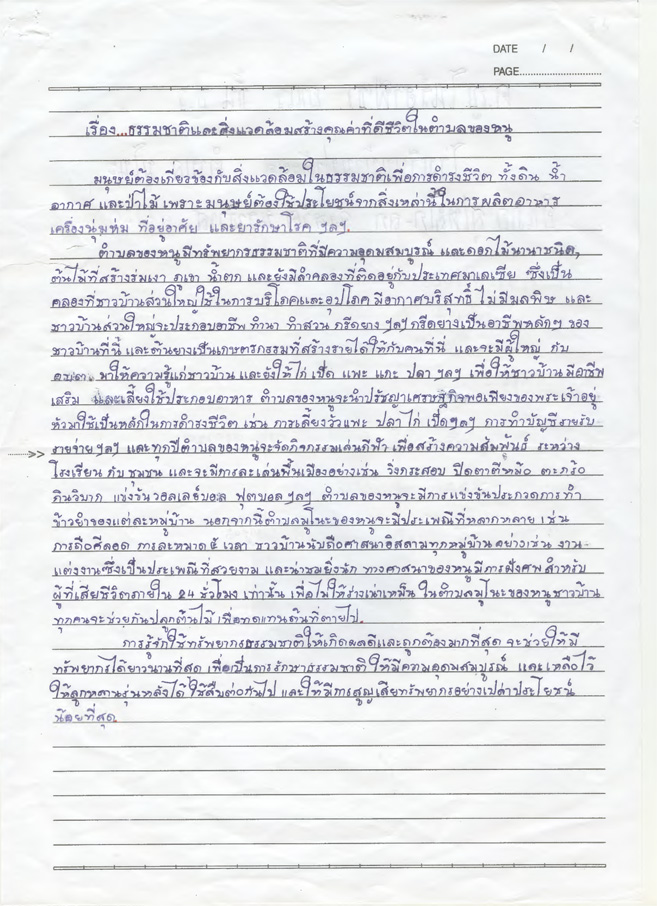 DATE / /
PAGE
เรื่อง...ธรรมชาติและสิ่งแวดล้อมสร้างคุณค่าที่ดีชีวิตในตำบลของหนู
มนุษย์ต้องเกี่ยวข้องกับสิ่งแวดล้อมในธรรมชาติเพื่อการดำรงชีวิต ทั้งดิน น้ำ
อากาศ และป่าไม้ เพราะมนุษย์ต้องใช้ประโยชน์จากสิ่งเหล่านี้ในการผลิตอาหาร
เครื่องนุ่มห่ม ที่อยู่อาศัย และยารักษาโรค ฯลฯ.
ตำบลของหนูมีทรัพยากรธรรมชาติที่มีความอุดมสมบูรณ์ และดอกไม้นานาชนิด,
ต้นไม้ที่สร้างร่มเงา ภูเขา น้ำตก และยังมีลำคลองที่ติดอยู่กับประเทศมาเลเซีย ซึ่งเป็น
คลองที่ชาวบ้านส่วนใหญ่ใช้ในการบริโภคและอุปโภค มีอากาศบริสุทธิ์ ไม่มีมลพิษ และ
ชาวบ้านส่วนใหญ่จะประกอบอาชีพ ทำนา ทำสวน กรีดยาง ฯลฯ กรีดยางเป็นอาชีพหลักๆ ของ
ชาวบ้านที่นี้ และต้นยางเป็นเกษตรกรรมที่สร้างรายได้ให้กับคนที่นี่ และจะมีผู้ใหญ่ กับ
อบต. มาให้ความรู้แก่ชาวบ้าน และยังให้ไก่ เป็ด แพะ แกะ ปลา ฯลฯ เพื่อให้ชาวบ้าน มีอาชีพ
เสริม และเลี้ยงใช้ประกอบอาหาร ตำบลของหนูจะนำปรัชญาเศรษฐกิจพอเพียงของพระเจ้าอยู่
หัวมาใช้เป็นหลักในการดำรงชีวิต เช่น การเลี้ยงวัวแพะ ปลา ไก่ เป็ดฯลฯ การทำบัญชีรายรับ
รายจ่าย ฯลฯ และทุกปีตำบลของหนูจะจัดกิจกรรมเล่นกีฬา เพื่อสร้างความสัมพันธ์ ระหว่าง
โรงเรียน กับ ชุมชน และจะมีการละเล่นพื้นเมืองอย่างเช่น วิ่งกระสอบ ปิดตาตีหม้อ ตะกร้อ
กินวิบาก แข่งขันวอลเลย์บอล ฟุตบอล ฯลฯ ตำบลของหนูจะมีการแข่งขันประกวดการทำ
ข้าวยำของแต่ละหมู่บ้าน นอกจากนี้ตำบลมูโนะของหนูจะมีประเพณีที่หลากหลาย เช่น
การถือศีลอด การละหมาด ๕ เวลา ชาวบ้านนับถือศาสนาอิสลามทุกหมู่บ้าน อย่างเช่น งาน
แต่งงานซึ่งเป็นประเพณีที่สวยงาม และน่าชมยิ่งนัก ทางศาสนาของหนูมีการฝังศพ สำหรับ
ผู้ที่เสียชีวิตภายใน 24 ชั่วโมง เท่านั้น เพื่อไม่ให้ร่างเน่าเหม็น ในตำบลมูโนะของหนูชาวบ้าน
ทุกคนจะช่วยกันปลูกต้นไม้ เพื่อทดแทนต้นที่ตายไป.
การรู้จักใช้ทรัพยากรธรรมชาติให้เกิดผลดีและถูกต้องมากที่สุด จะช่วยให้มี
ทรัพยากรได้ยาวนานที่สุด เพื่อเป็นการรักษาธรรมชาติ ให้มีความอุดมสมบูรณ์ และเหลือไว้
ให้ลูกหลานรุ่นหลังได้ใช้สืบต่อกันไป และให้มีการสูญเสียทรัพยากรอย่างเปล่าประโยชน์
น้อยที่สุด.